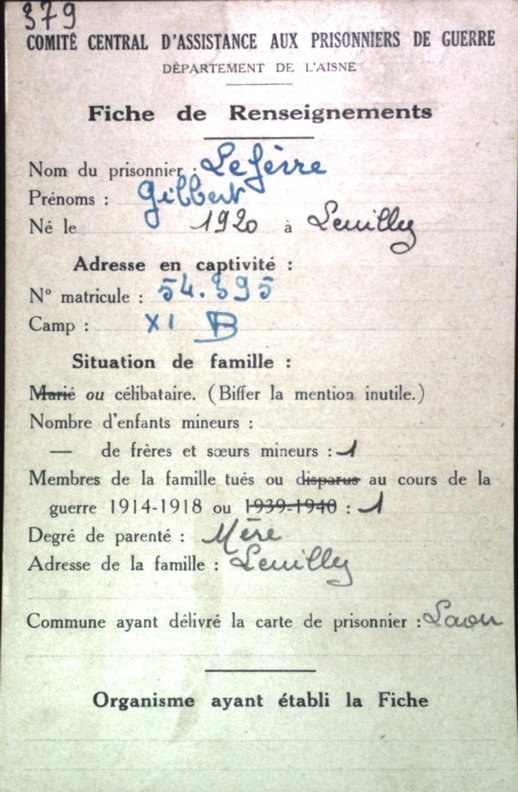 379
COMITÉ CENTRAL D'ASSISTANCE AUX PRISONNIERS DE GUERRE
DÉPARTEMENT DE L'AISNE
Fiche de Renseignements
Nom du prisonnier : Lefèvre
Prénoms : Gilbert
Né le 1920 à Leuilly
Adresse en captivité :
N° matricule : 54.395
Camp : XI B
Situation de famille :
Marié ou célibataire. (Biffer la mention inutile.)
Nombre d'enfants mineurs :
— de frères et sœurs mineurs : 1
Membres de la famille tués ou disparus au cours de la
guerre 1914-1918 ou 1939-1940 : 1
Degré de parenté : Mère
Adresse de la famille : Leuilly
Commune ayant délivré la carte de prisonnier : Laon
Organisme ayant établi la Fiche